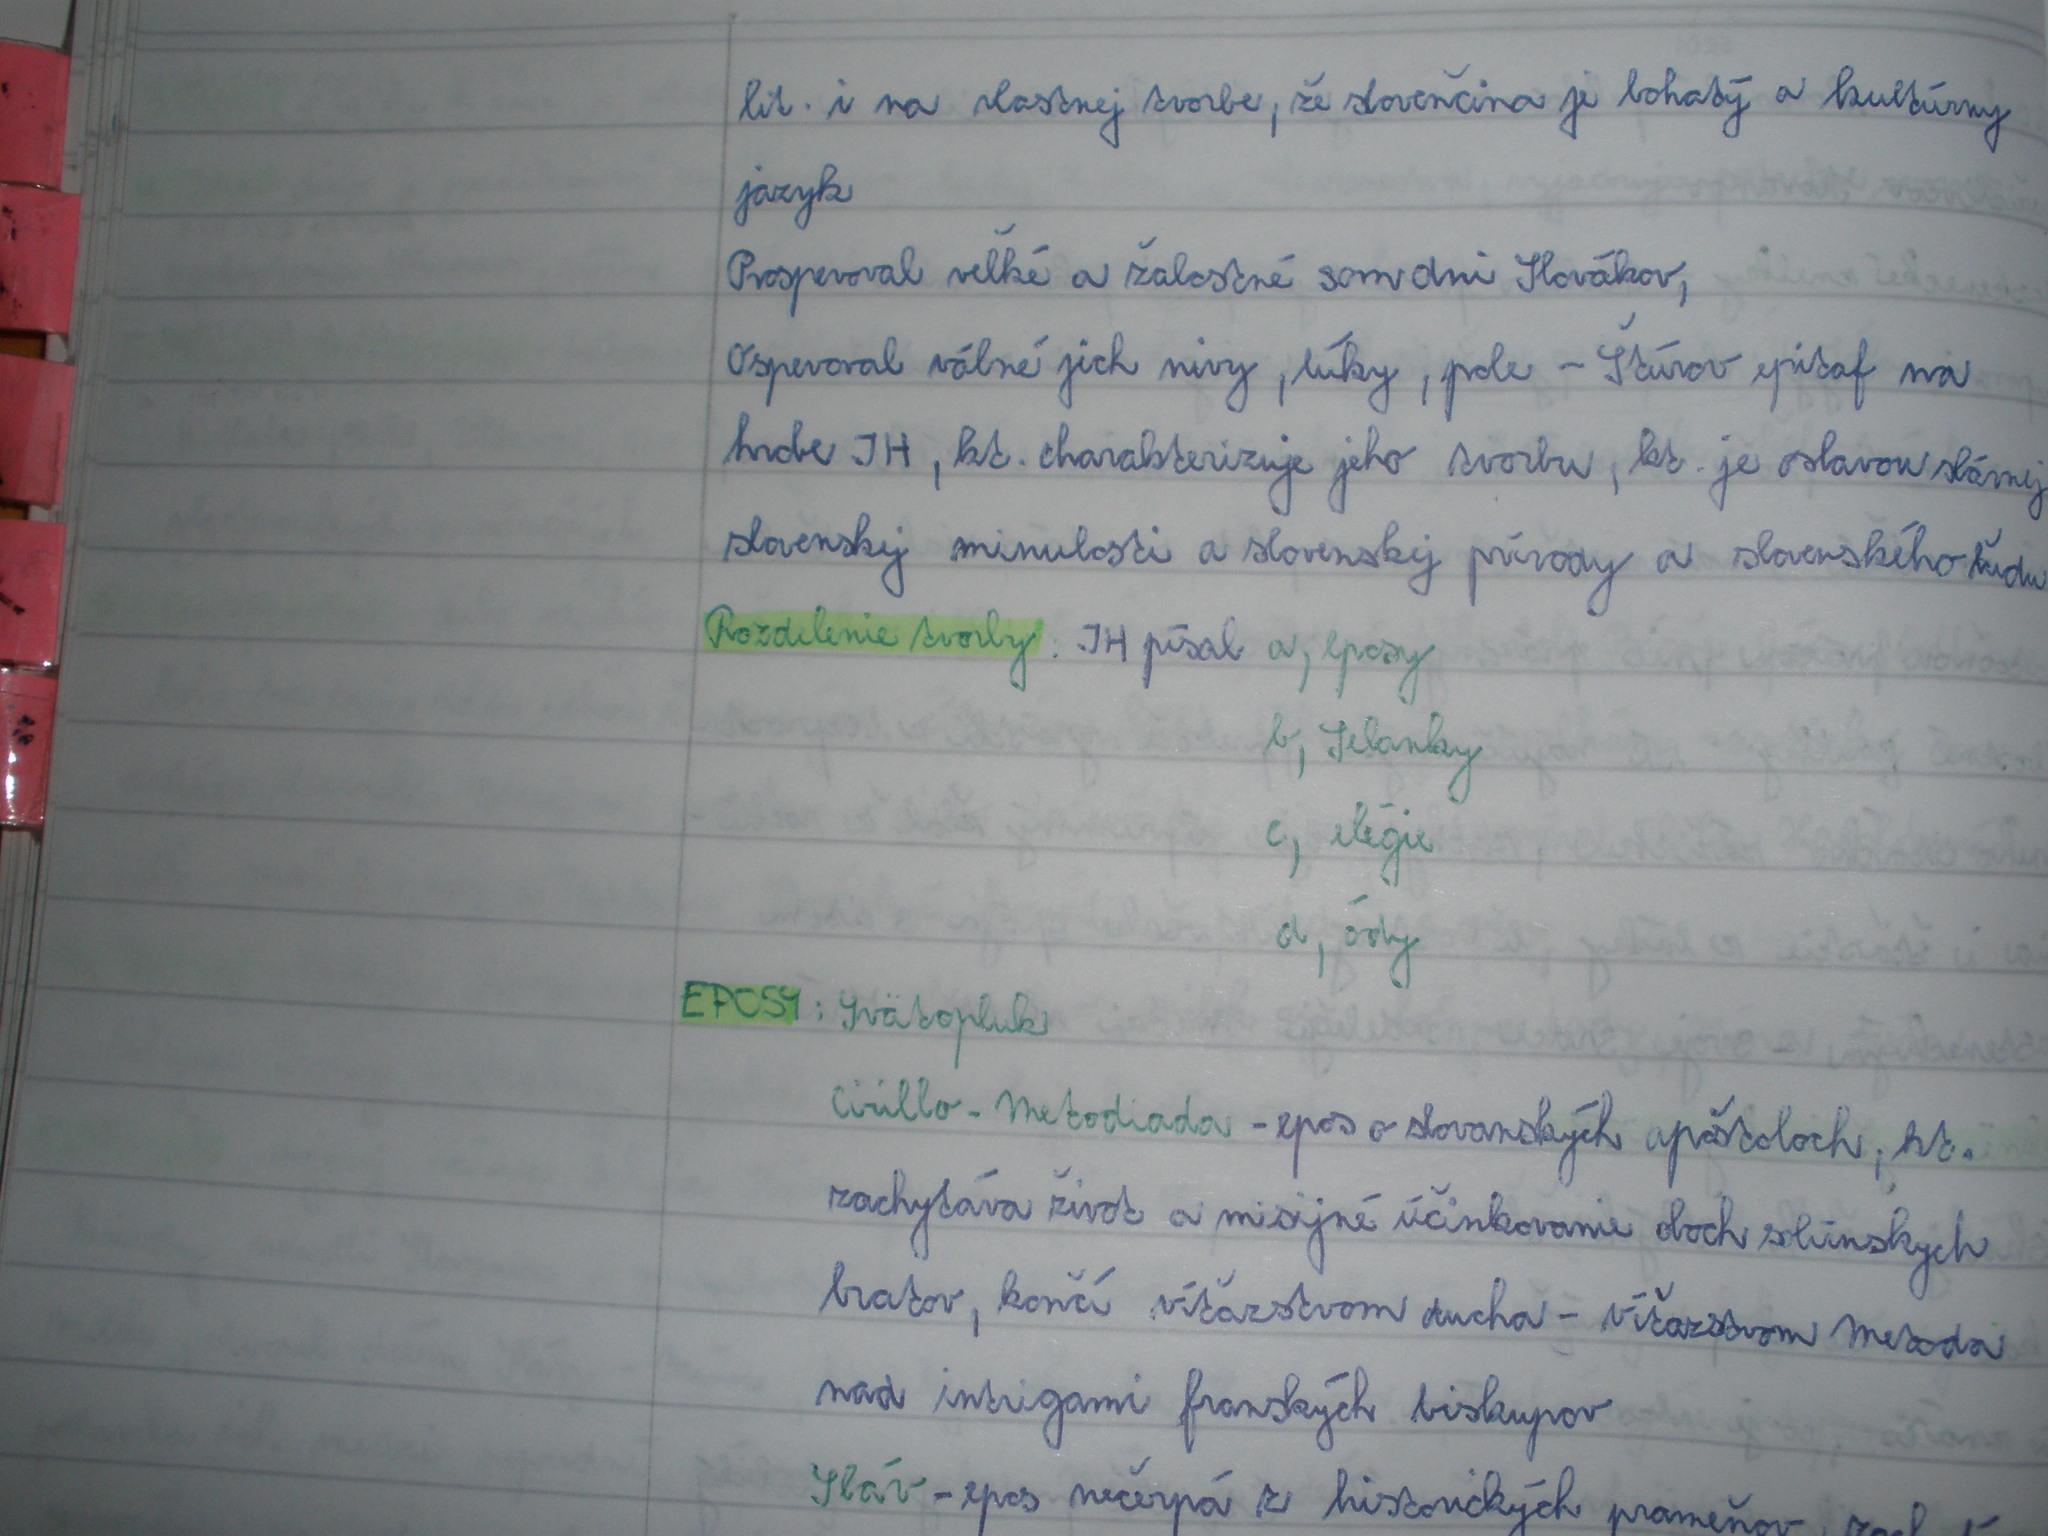 lit. i na vlastnej tvorbe, že slovenčina je bohatý a kultúrny
jazyk
Prospevoval veľké a žalostné som dni Slovákov,
Ospevoval válné jich nivy, lúky, pole – Štúrov epitaf na
hrobe JH, kt. charakterizuje jeho tvorbu, kt. je oslavou slávnej
slovenskej minulosti a slovenskej prírody a slovenského ľudu
Rozdelenie tvorby: JH písal a, eposy
b, Selanky
c, elégie
d, ódy
EPOSY: Svätopluk
Cirillo-Metodiada – epos o slovanských apoštoloch, kt.
zachytáva život a misijné účinkovanie oboch solúnskych
bratov, končí víťazstvom ducha – víťazstvom Metoda
nad intrigami franských biskupov
Sláv – epos nečerpá z historických prameňov,